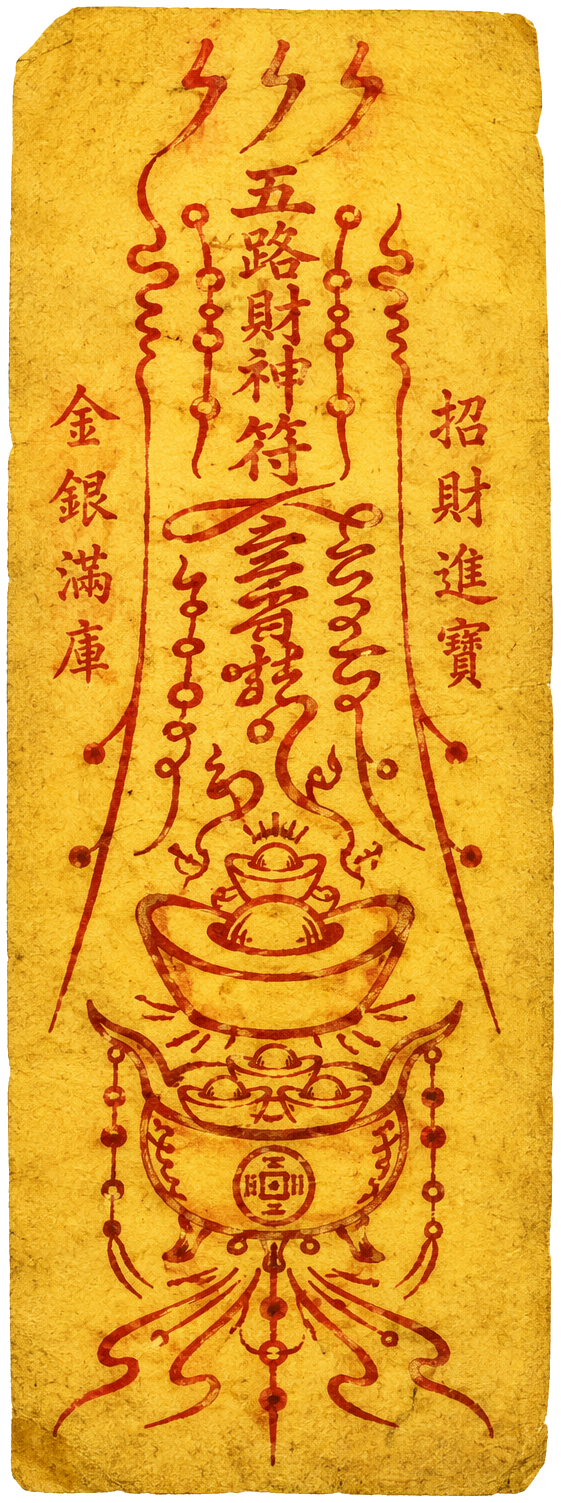 五路財神符
招財進寶
金銀滿庫